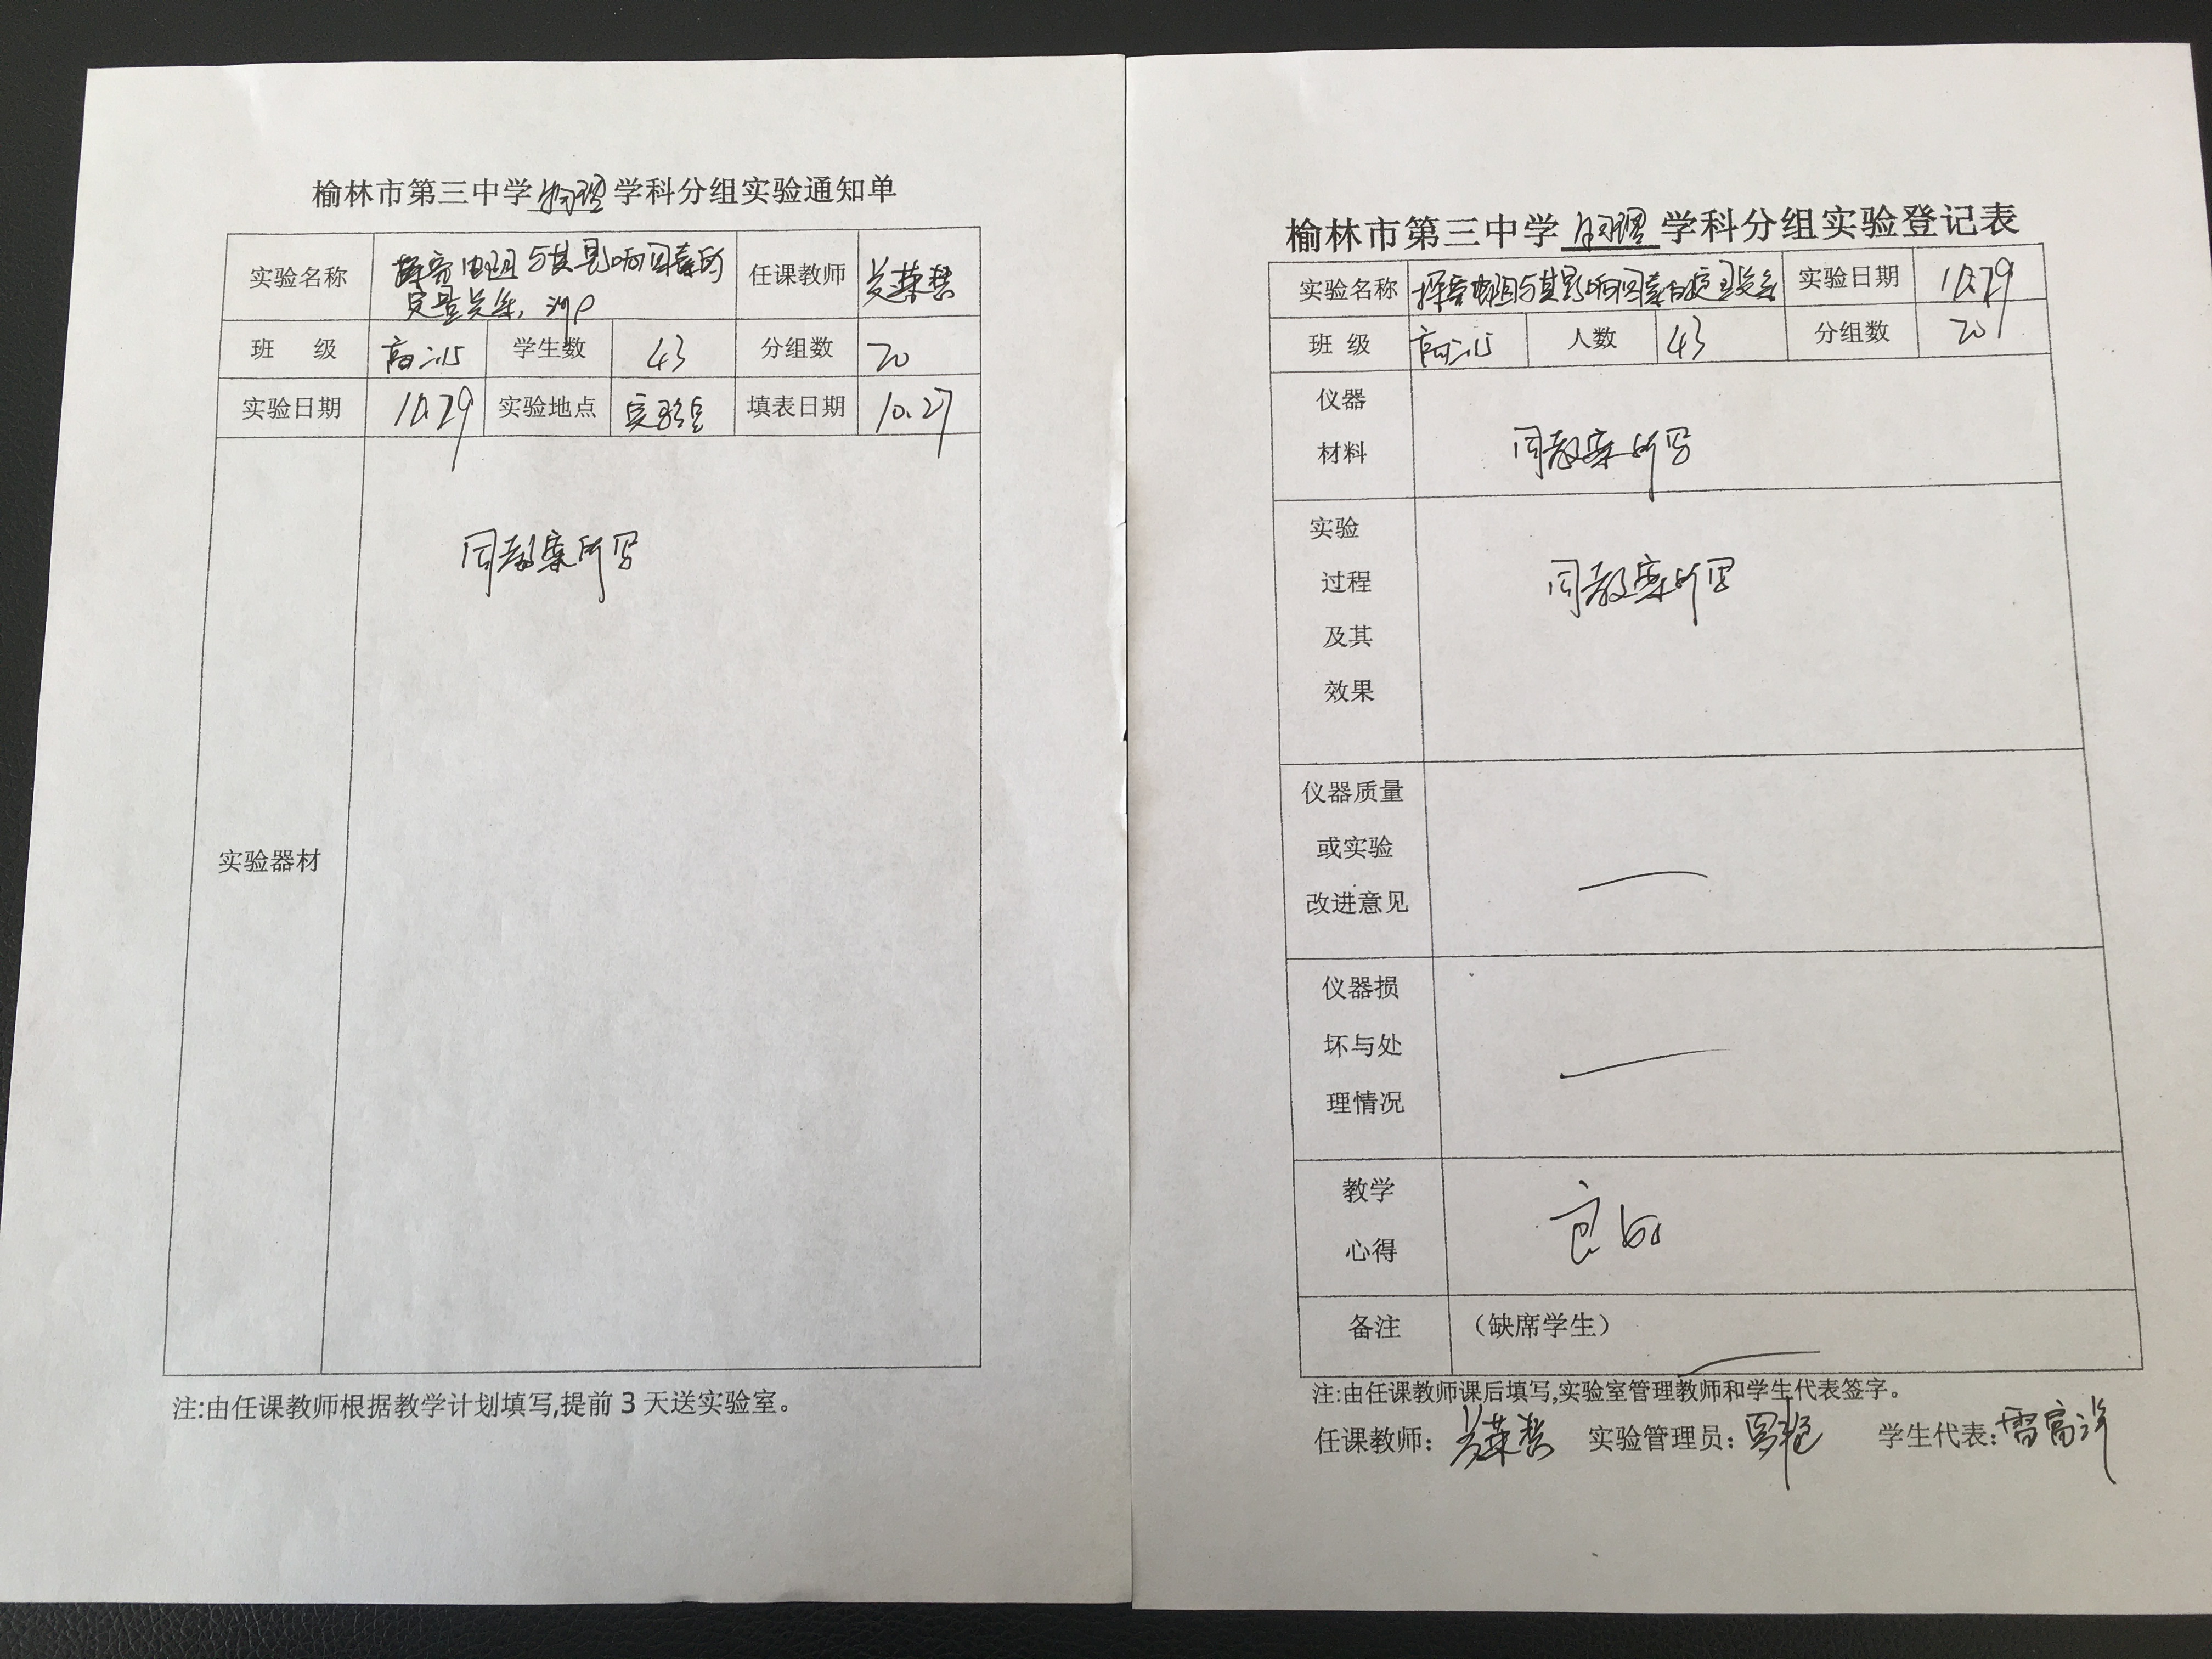 榆林市第三中学物理学科分组实验通知单
实验名称 探究电阻与其影响因素的 任课教师
定量关系，测ρ
班 级 高二.15 学生数 43 分组数 20
实验日期 10.29 实验地点 实验室 填表日期 10.27
同教案所写
实验器材
注:由任课教师根据教学计划填写,提前3天送实验室。
榆林市第三中学物理学科分组实验登记表
实验名称 探究电阻与其影响因素的定量关系 实验日期 10.29
班 级 高二.15 人数 43 分组数 20
仪器
材料
同教案所写
实验
过程
及其
效果
同教案所写
仪器质量
或实验
改进意见
仪器损
坏与处
理情况
教学
心得
良好
备注 （缺席学生）
注:由任课教师课后填写,实验室管理教师和学生代表签字。
任课教师: 实验管理员: 学生代表: